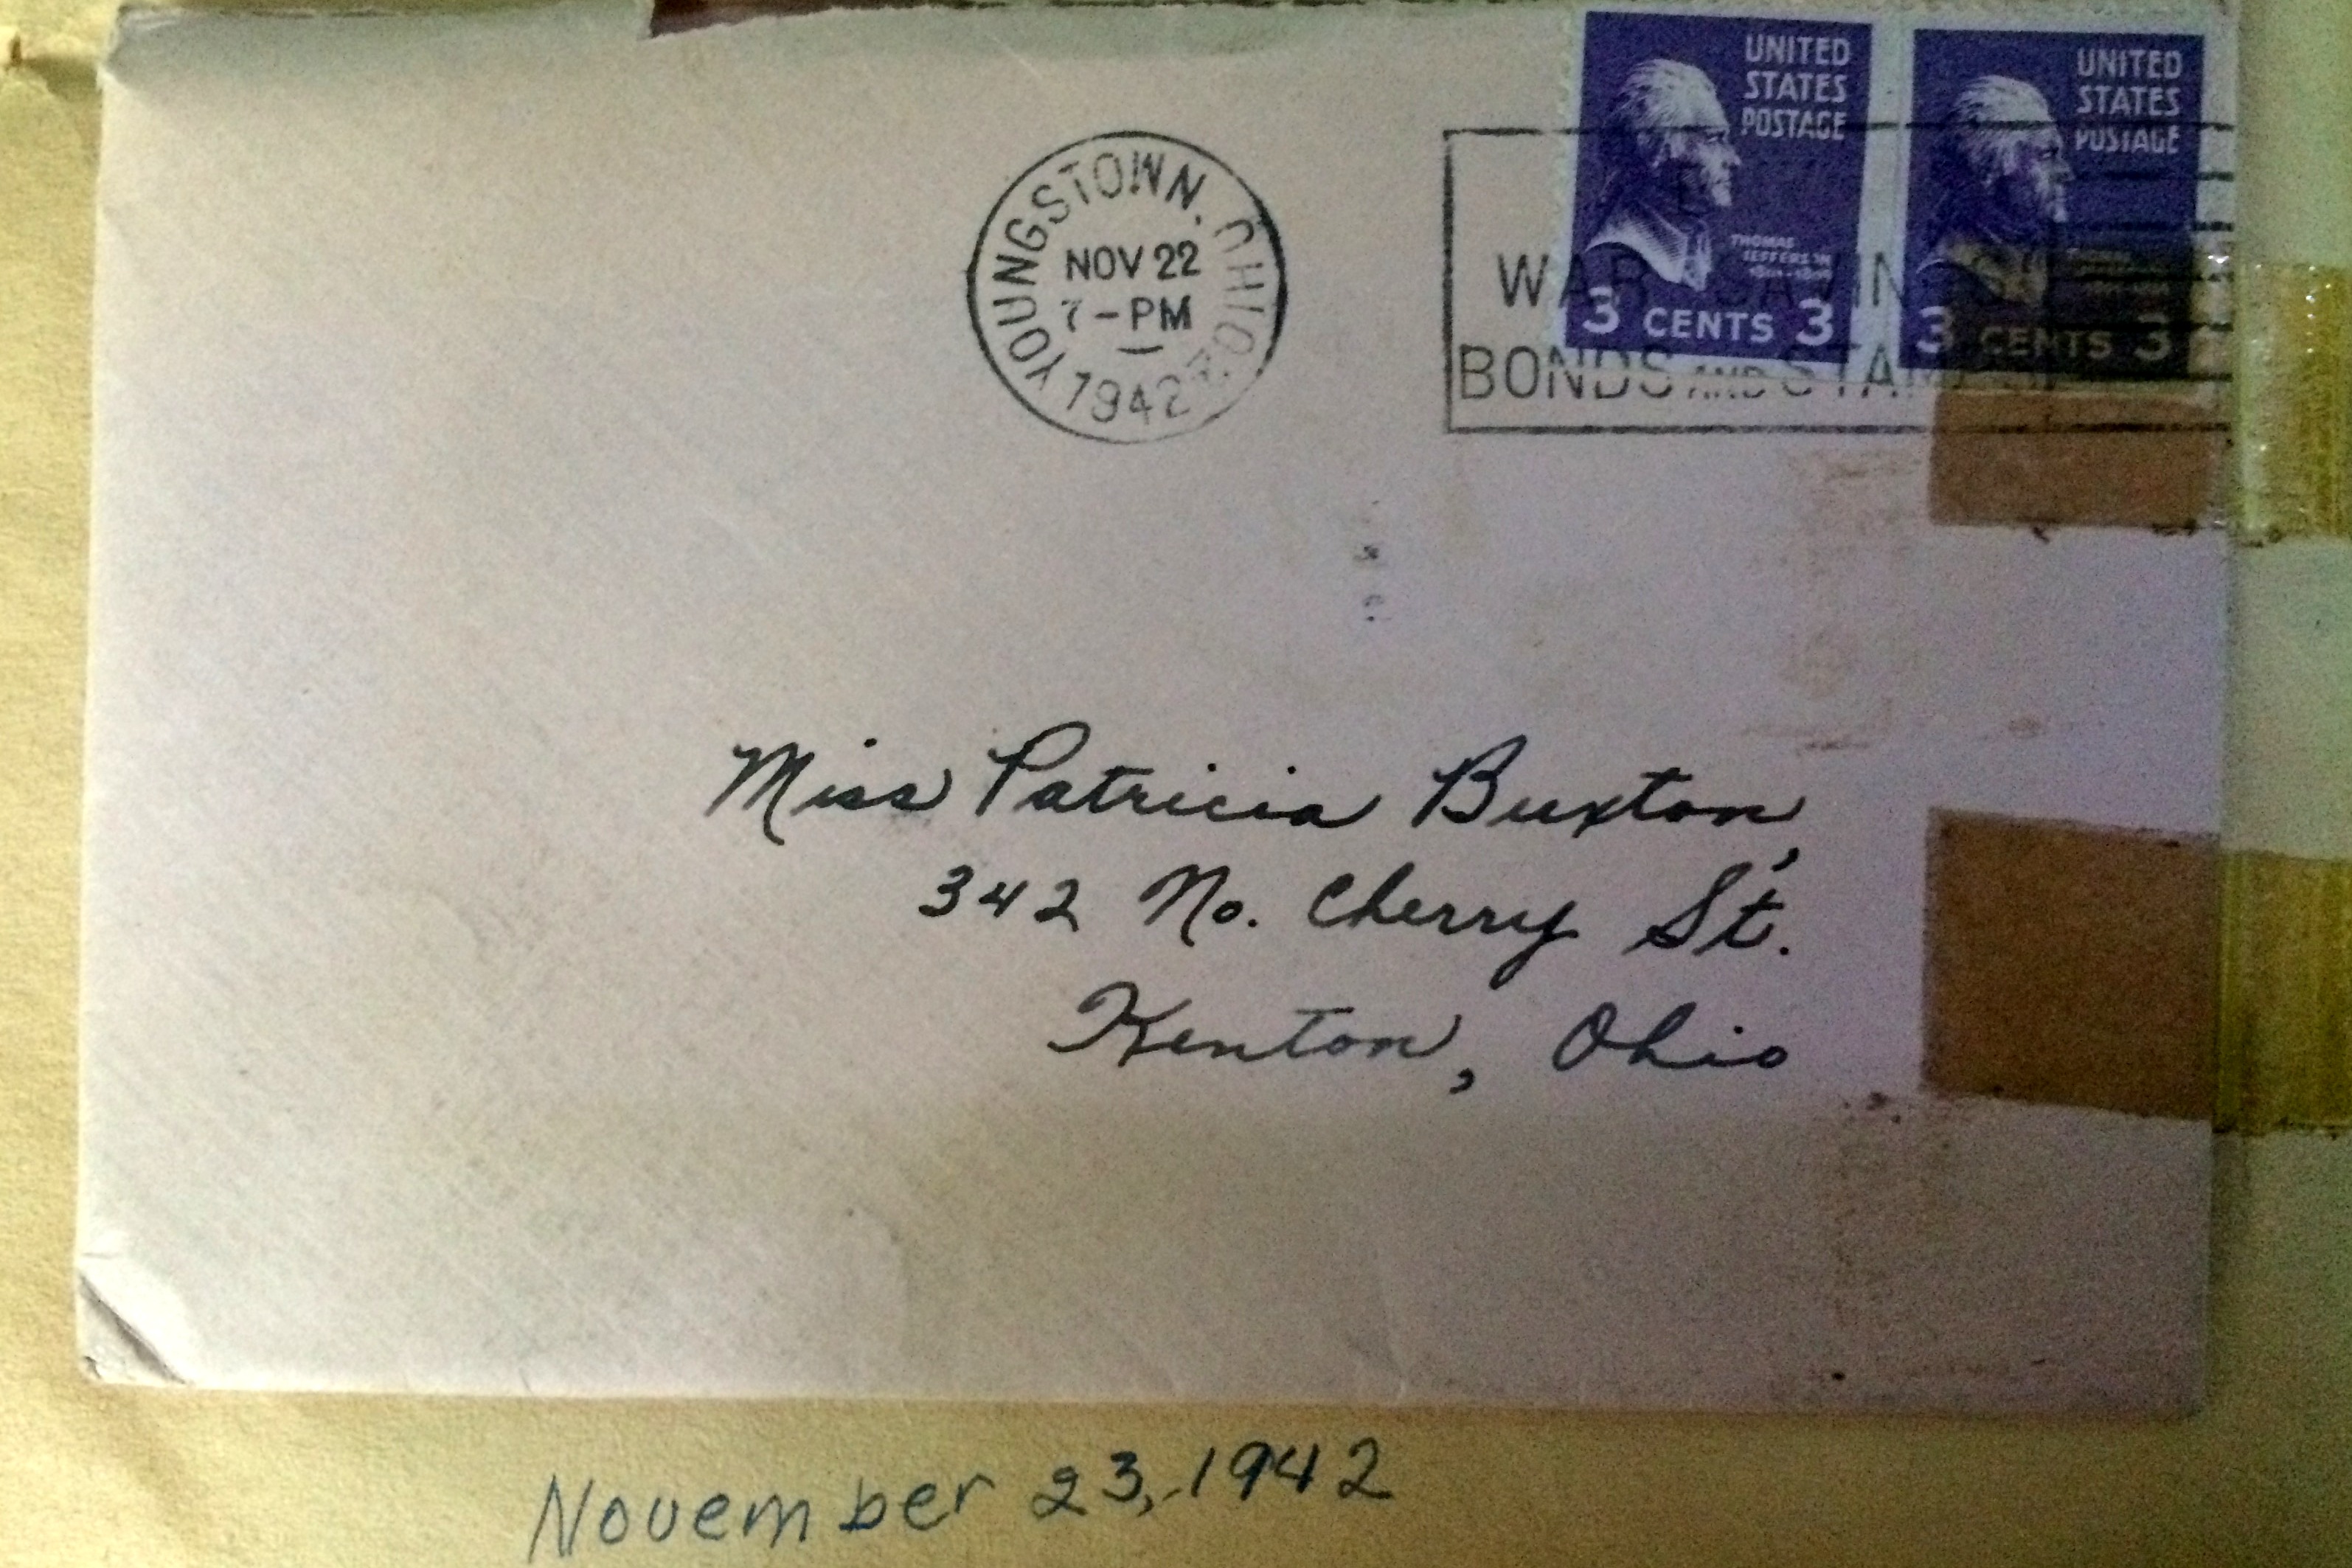 UNITED
STATES
POSTAGE
THOMAS
JEFFERSON
3 CENTS 3
UNITED
STATES
POSTAGE
3 CENTS 3
YOUNGSTOWN, OHIO
NOV 22
7-PM
1942
WAR SAVINGS
BONDS AND STAMPS
Miss Patricia Buxton,
342 No. Cherry St.
Kenton, Ohio
November 23, 1942